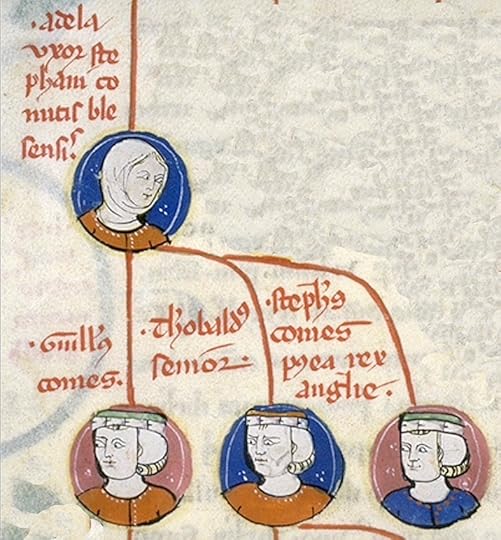 ·adela
vxor ste
phani co
mitis ble
sensiſ.
·Guill's
comes.
·thobald'
senior·
·steph's
comes
p9ea rex
anglie·